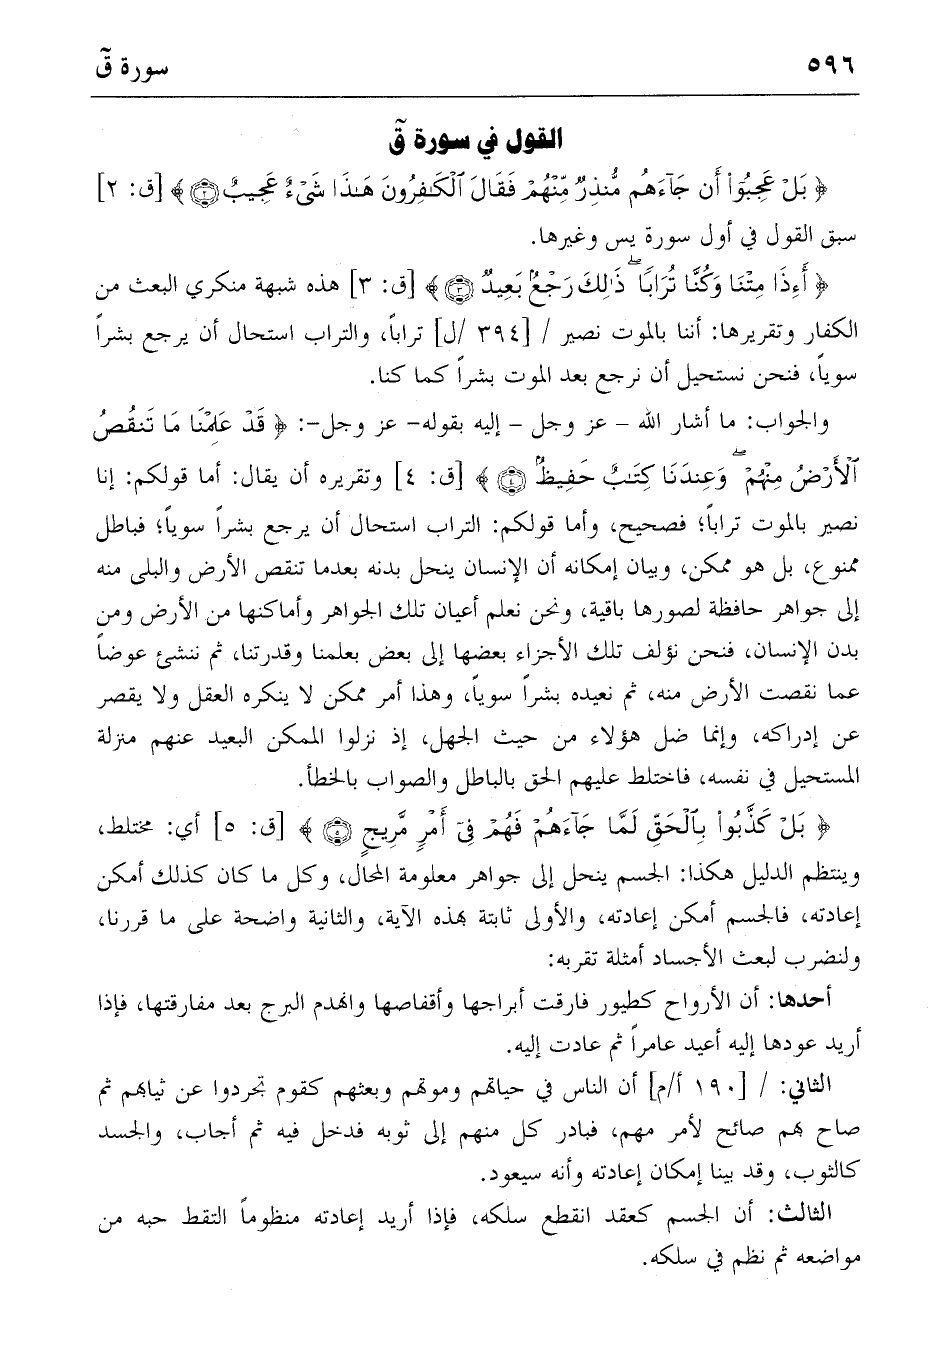 ٥٩٦ سورة قۤ
القول في سورة قۤ
﴿ بَلْ عَجِبُوٓا۟ أَن جَآءَهُم مُّنذِرٌ مِّنْهُمْ فَقَالَ ٱلْكَـٰفِرُونَ هَـٰذَا شَىْءٌ عَجِيبٌ ۝٢ ﴾ [ق: ٢]
سبق القول في أول سورة يس وغيرها.
﴿ أَءِذَا مِتْنَا وَكُنَّا تُرَابًا ۖ ذَٰلِكَ رَجْعٌۢ بَعِيدٌ ۝٣ ﴾ [ق: ٣] هذه شبهة منكري البعث من
الكفار وتقريرها: أننا بالموت نصير / [٣٩٤ /ل] تراباً، والتراب استحال أن يرجع بشراً
سوياً، فنحن نستحيل أن نرجع بعد الموت بشراً كما كنا.
والجواب: ما أشار الله – عز وجل – إليه بقوله- عز وجل-: ﴿ قَدْ عَلِمْنَا مَا تَنقُصُ
ٱلْأَرْضُ مِنْهُمْ ۖ وَعِندَنَا كِتَـٰبٌ حَفِيظٌۢ ۝٤ ﴾ [ق: ٤] وتقريره أن يقال: أما قولكم: إنا
نصير بالموت تراباً؛ فصحيح، وأما قولكم: التراب استحال أن يرجع بشراً سوياً؛ فباطل
ممنوع، بل هو ممكن، وبيان إمكانه أن الإنسان ينحل بدنه بعدما تنقص الأرض والبلى منه
إلى جواهر حافظة لصورها باقية، ونحن نعلم أعيان تلك الجواهر وأماكنها من الأرض ومن
بدن الإنسان، فنحن نؤلف تلك الأجزاء بعضها إلى بعض بعلمنا وقدرتنا، ثم ننشئ عوضاً
عما نقصت الأرض منه، ثم نعيده بشراً سوياً، وهذا أمر ممكن لا ينكره العقل ولا يقصر
عن إدراكه، وإنما ضل هؤلاء من حيث الجهل، إذ نزلوا الممكن البعيد عنهم منزلة
المستحيل في نفسه، فاختلط عليهم الحق بالباطل والصواب بالخطأ.
﴿ بَلْ كَذَّبُوا۟ بِٱلْحَقِّ لَمَّا جَآءَهُمْ فَهُمْ فِىٓ أَمْرٍ مَّرِيجٍ ۝٥ ﴾ [ق: ٥] أي: مختلط،
وينتظم الدليل هكذا: الجسم ينحل إلى جواهر معلومة المحال، وكل ما كان كذلك أمكن
إعادته، فالجسم أمكن إعادته، والأولى ثابتة بهذه الآية، والثانية واضحة على ما قررنا،
ولنضرب لبعث الأجساد أمثلة تقربه:
أحدها: أن الأرواح كطيور فارقت أبراجها وأقفاصها وانهدم البرج بعد مفارقتها، فإذا
أريد عودها إليه أعيد عامراً ثم عادت إليه.
الثاني: / [١٩٠ أ/م] أن الناس في حياتهم وموتهم وبعثهم كقوم تجردوا عن ثيابهم ثم
صاح بهم صائح لأمر مهم، فبادر كل منهم إلى ثوبه فدخل فيه ثم أجاب، والجسد
كالثوب، وقد بينا إمكان إعادته وأنه سيعود.
الثالث: أن الجسم كعقد انقطع سلكه، فإذا أريد إعادته منظوماً التقط حبه من
مواضعه ثم نظم في سلكه.